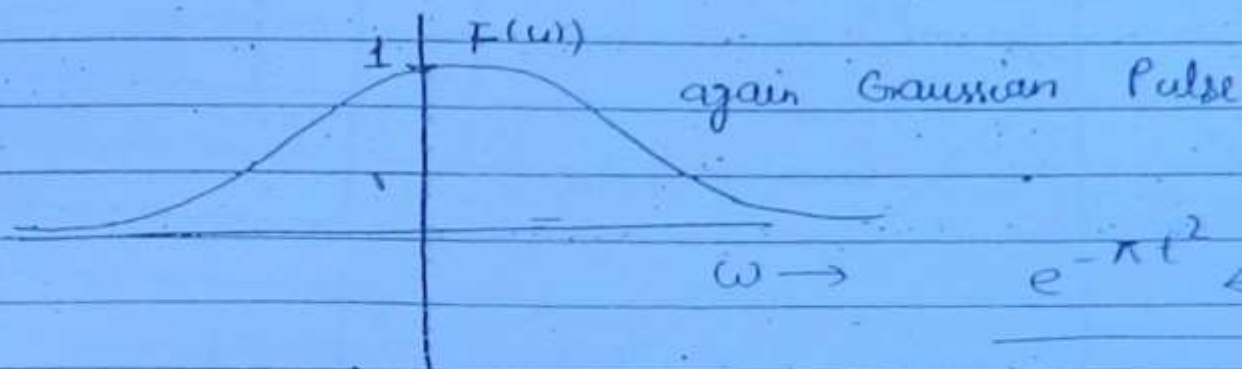 1 F(ω)
again Gaussian Pulse
ω →
e^{-πt²}